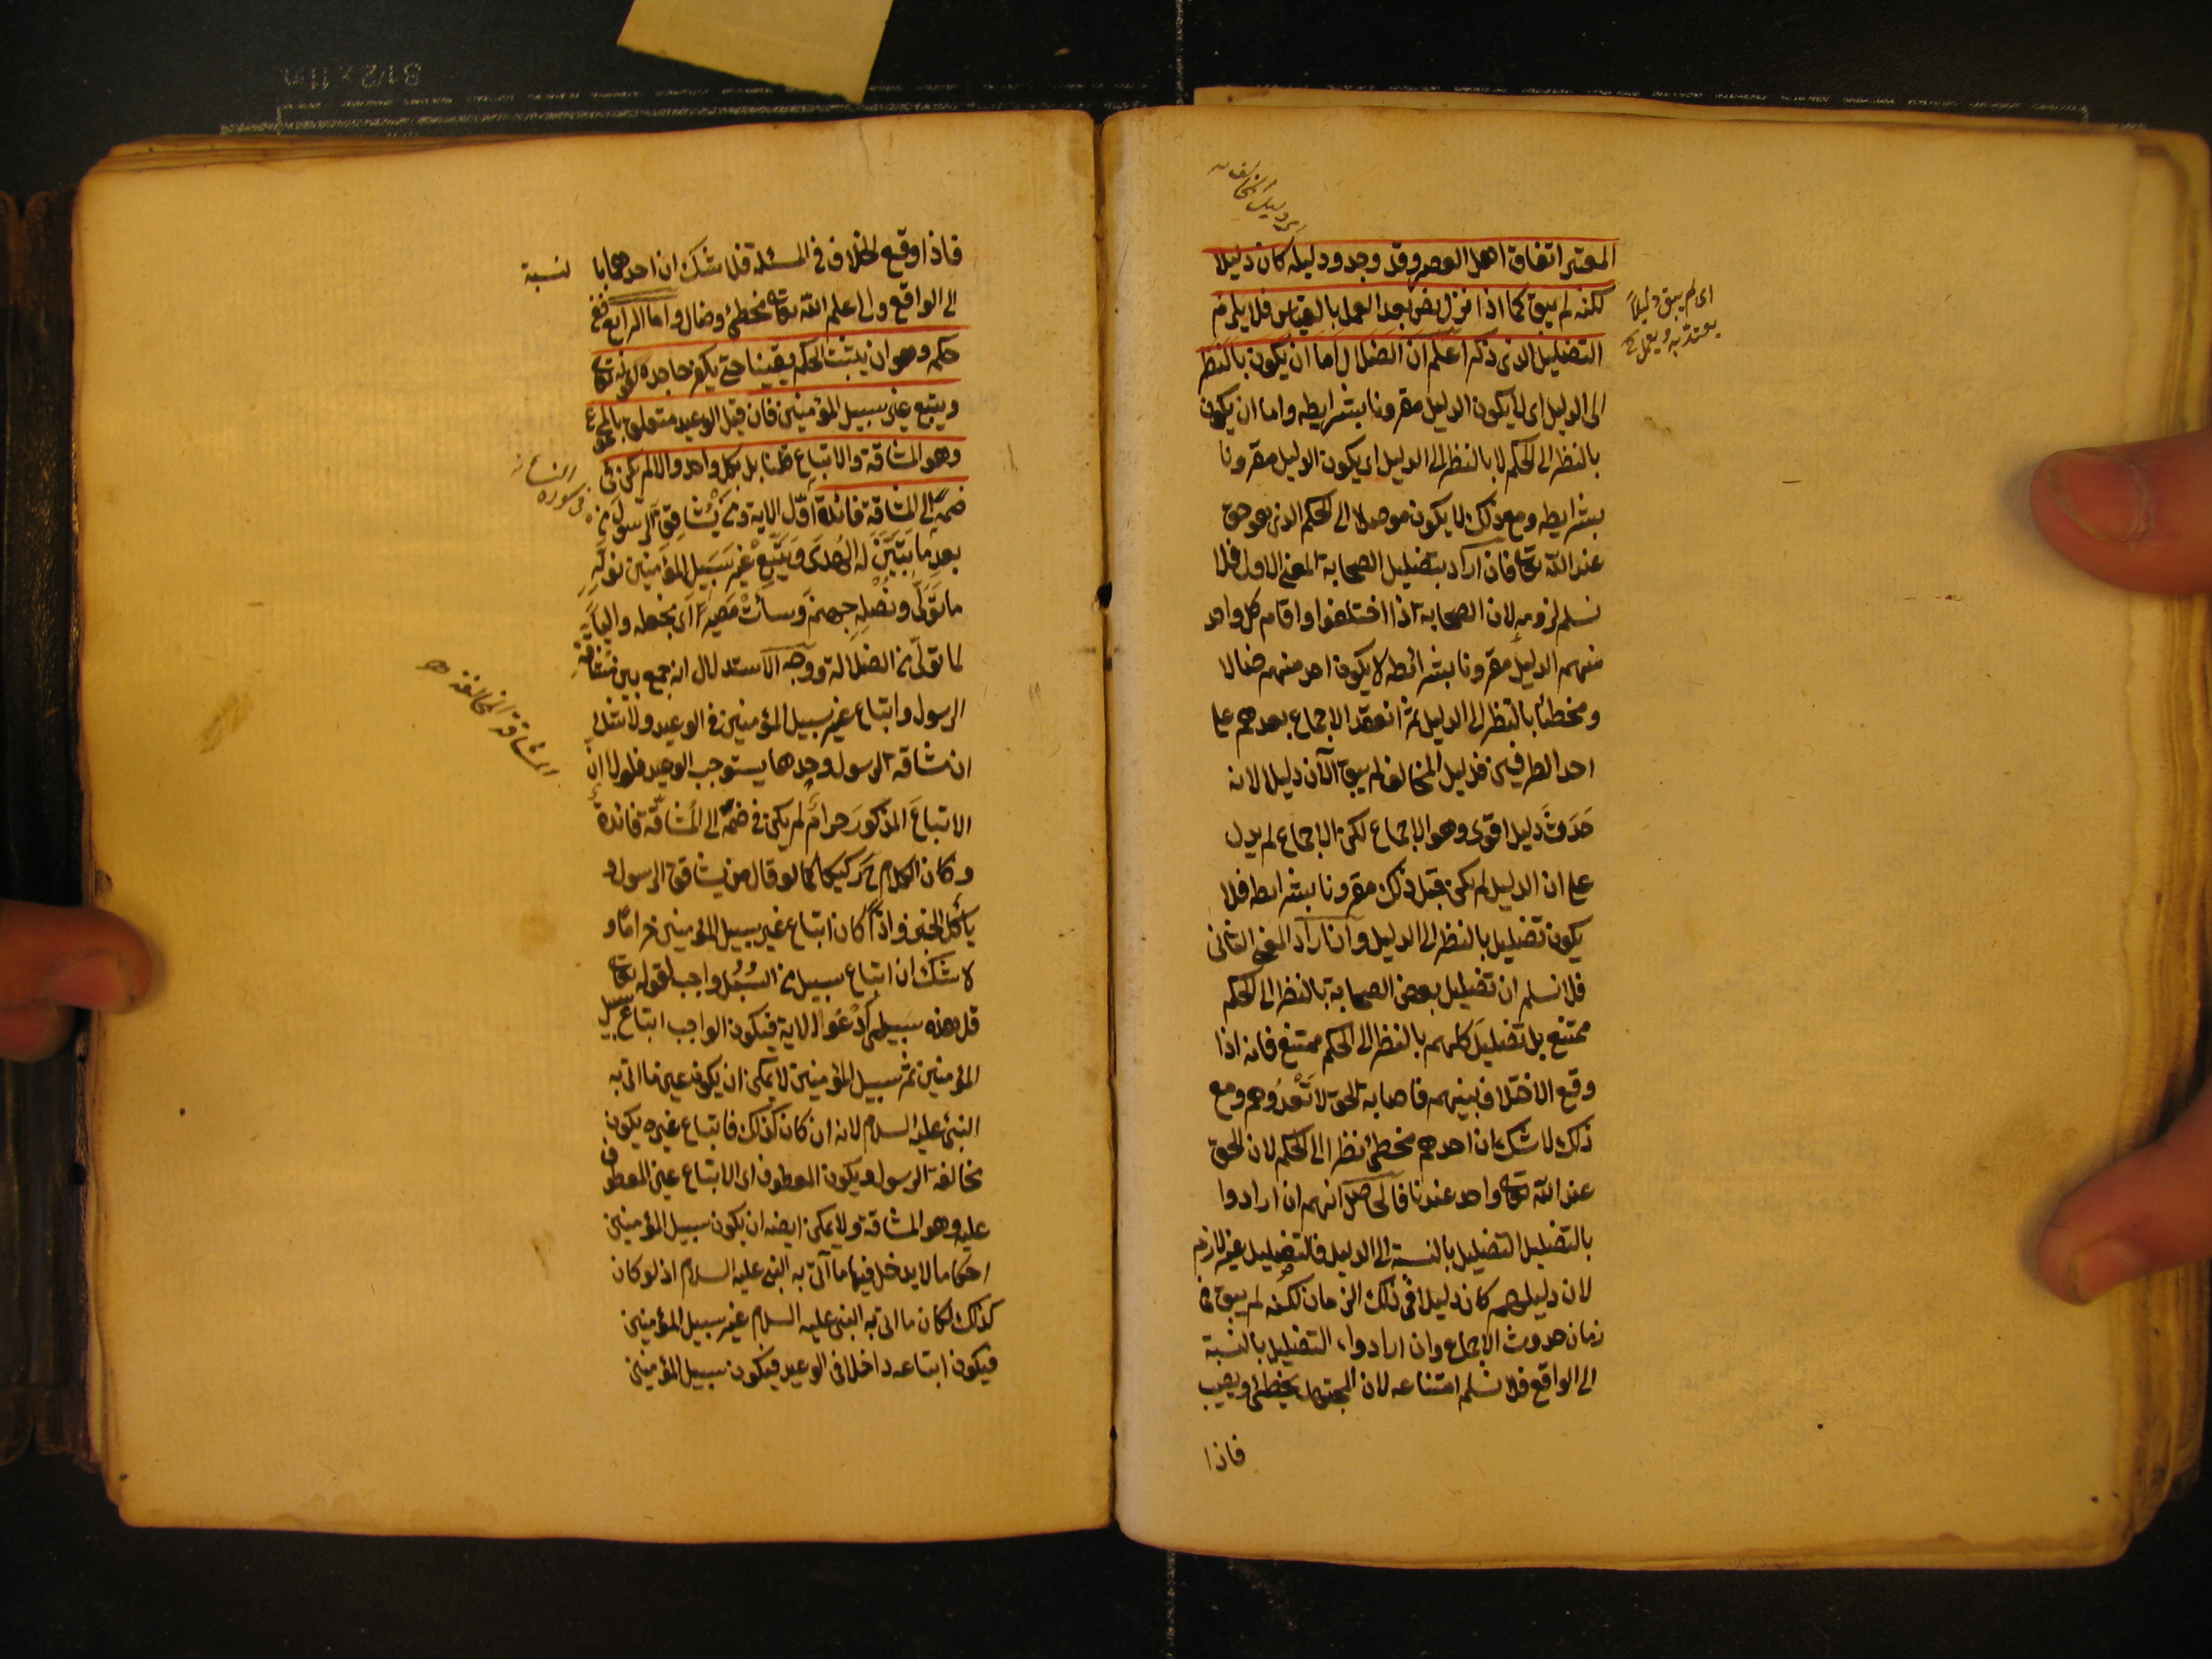 المعتبر اتفاق اهل العصر وقد وجد ودليله كان دليلا
لكنه لم يبق كما اذا نزل نص بعد العمل بالقياس فلا يلزم
التضليل الذى ذكر اعلم ان الضلال اما ان يكون بالنظر
الى الدليل اى لا يكون الدليل مقرونا بشرايطه واما ان يكون
بالنظر الى الحكم لا بالنظر الى الدليل اى يكون الدليل مقرونا
بشرايطه ومع ذلك لا يكون موصلا الى الحكم الذى هو حق
عند الله تعا فان اراد بتضليل الصحابة المعنى الاول فلا
نسلم لزومه لان الصحابة اذا اختلفوا واقام كل واحد
منهم الدليل مقرونا بشرائطه لا يكون احد منهم ضالا
ومخطئا بالنظر الى الدليل ثم انعقد الاجماع بعدهم على
احد الطرفين فدليل المخالف لم يبق الآن دليلا لانه
حدث دليل اقوى وهو الاجماع لكن الاجماع لم يدل
على ان الدليل لم يكن قبل ذلك مقرونا بشرايطه فلا
يكون تضليل بالنظر الى الدليل وان اراد المعنى الثانى
فلا نسلم ان تضليل بعض الصحابة بالنظر الى الحكم
ممتنع بل تضليل كلهم بالنظر الى الحكم ممتنع فانه اذا
وقع الاختلاف بينهم فاصابة الحق لا تَعْدُوهم ومع
ذلك لا شك ان احدهم مخطئ نظرا الى الحكم لان الحق
عند الله تعا واحد عندنا فالحاصل انهم ان ارادوا
بالتضليل التضليل بالنسبة الى الدليل فالتضليل غير لازم
لان دليلهم كان دليلا فى ذلك الزمان لكنه لم يبق فى
زمان حدوث الاجماع وان ارادوا التضليل بالنسبة
الى الواقع فلا نسلم امتناعه لان المجتهد يخطئ ويصيب
فاذا
اى دليل المخالف
اى لم يبق دليلاً
يعتد به ويعمل
فاذا وقع الخلاف فى المسئلة فلا شك ان احدهما با لنسبة
الى الواقع والى علم الله تعا مخطئ وضال واما الرابع ففى
حكمه وهو ان يثبت الحكم يقينا حتى يكفر جاحده لقوله تعا
ويتبع غير سبيل المؤمنين فان قيل الوعيد متعلق بالمجموع
وهو المشاقة والاتباع قلنا بل بكل واحد والا لم يكن فى
ضمه الى المشاقة فائدة اوّل الاية ومن يُشاقق الرسول من
بعد ما تبيّن له الهدى ويتّبع غير سبيل المؤمنين نولّه
ما تولّى ونُصْلِه جهنم وساءت مصيرا اى نجعله واليا
لما تولّى من الضلالة ووجه الاستدلال انه جمع بين مشاقة
الرسول واتباع غير سبيل المؤمنين فى الوعيد ولا شك
ان مشاقة الرسول وحدها يستوجب الوعيد فلولا ان
الاتباع المذكور حرام لم يكن فى ضمه الى المشاقّة فائدة
وكان الكلام ح ركيكا كما لو قال من يشاقق الرسول و
يأكل الخبز واذا كان اتباع غير سبيل المؤمنين حراما و
لا شك ان اتباع سبيل من السُبُل واجب لقوله تعا
قل هذه سبيلى ادْعُوا الاية فيكون الواجب اتباع سبيل
المؤمنين ثم سبيل المؤمنين لا يمكن ان يكون عين ما اتى به
النبى عليه السلام لانه ان كان كذلك فاتباع غيره يكون
مخالفة الرسول ويكون المعطوف اى الاتباع عين المعطوف
عليه وهو المشاقة ولا يمكن ايضه ان يكون سبيل المؤمنين
احكاما لا يدخل فيها ما اتى به النبى عليه السلام اذ لو كان
كذلك لكان ما اتى به النبى عليه السلام غير سبيل المؤمنين
فيكون اتباعه داخلا فى الوعيد فيكون سبيل المؤمنين
فى سورة النساء
المشاقة المخالفة